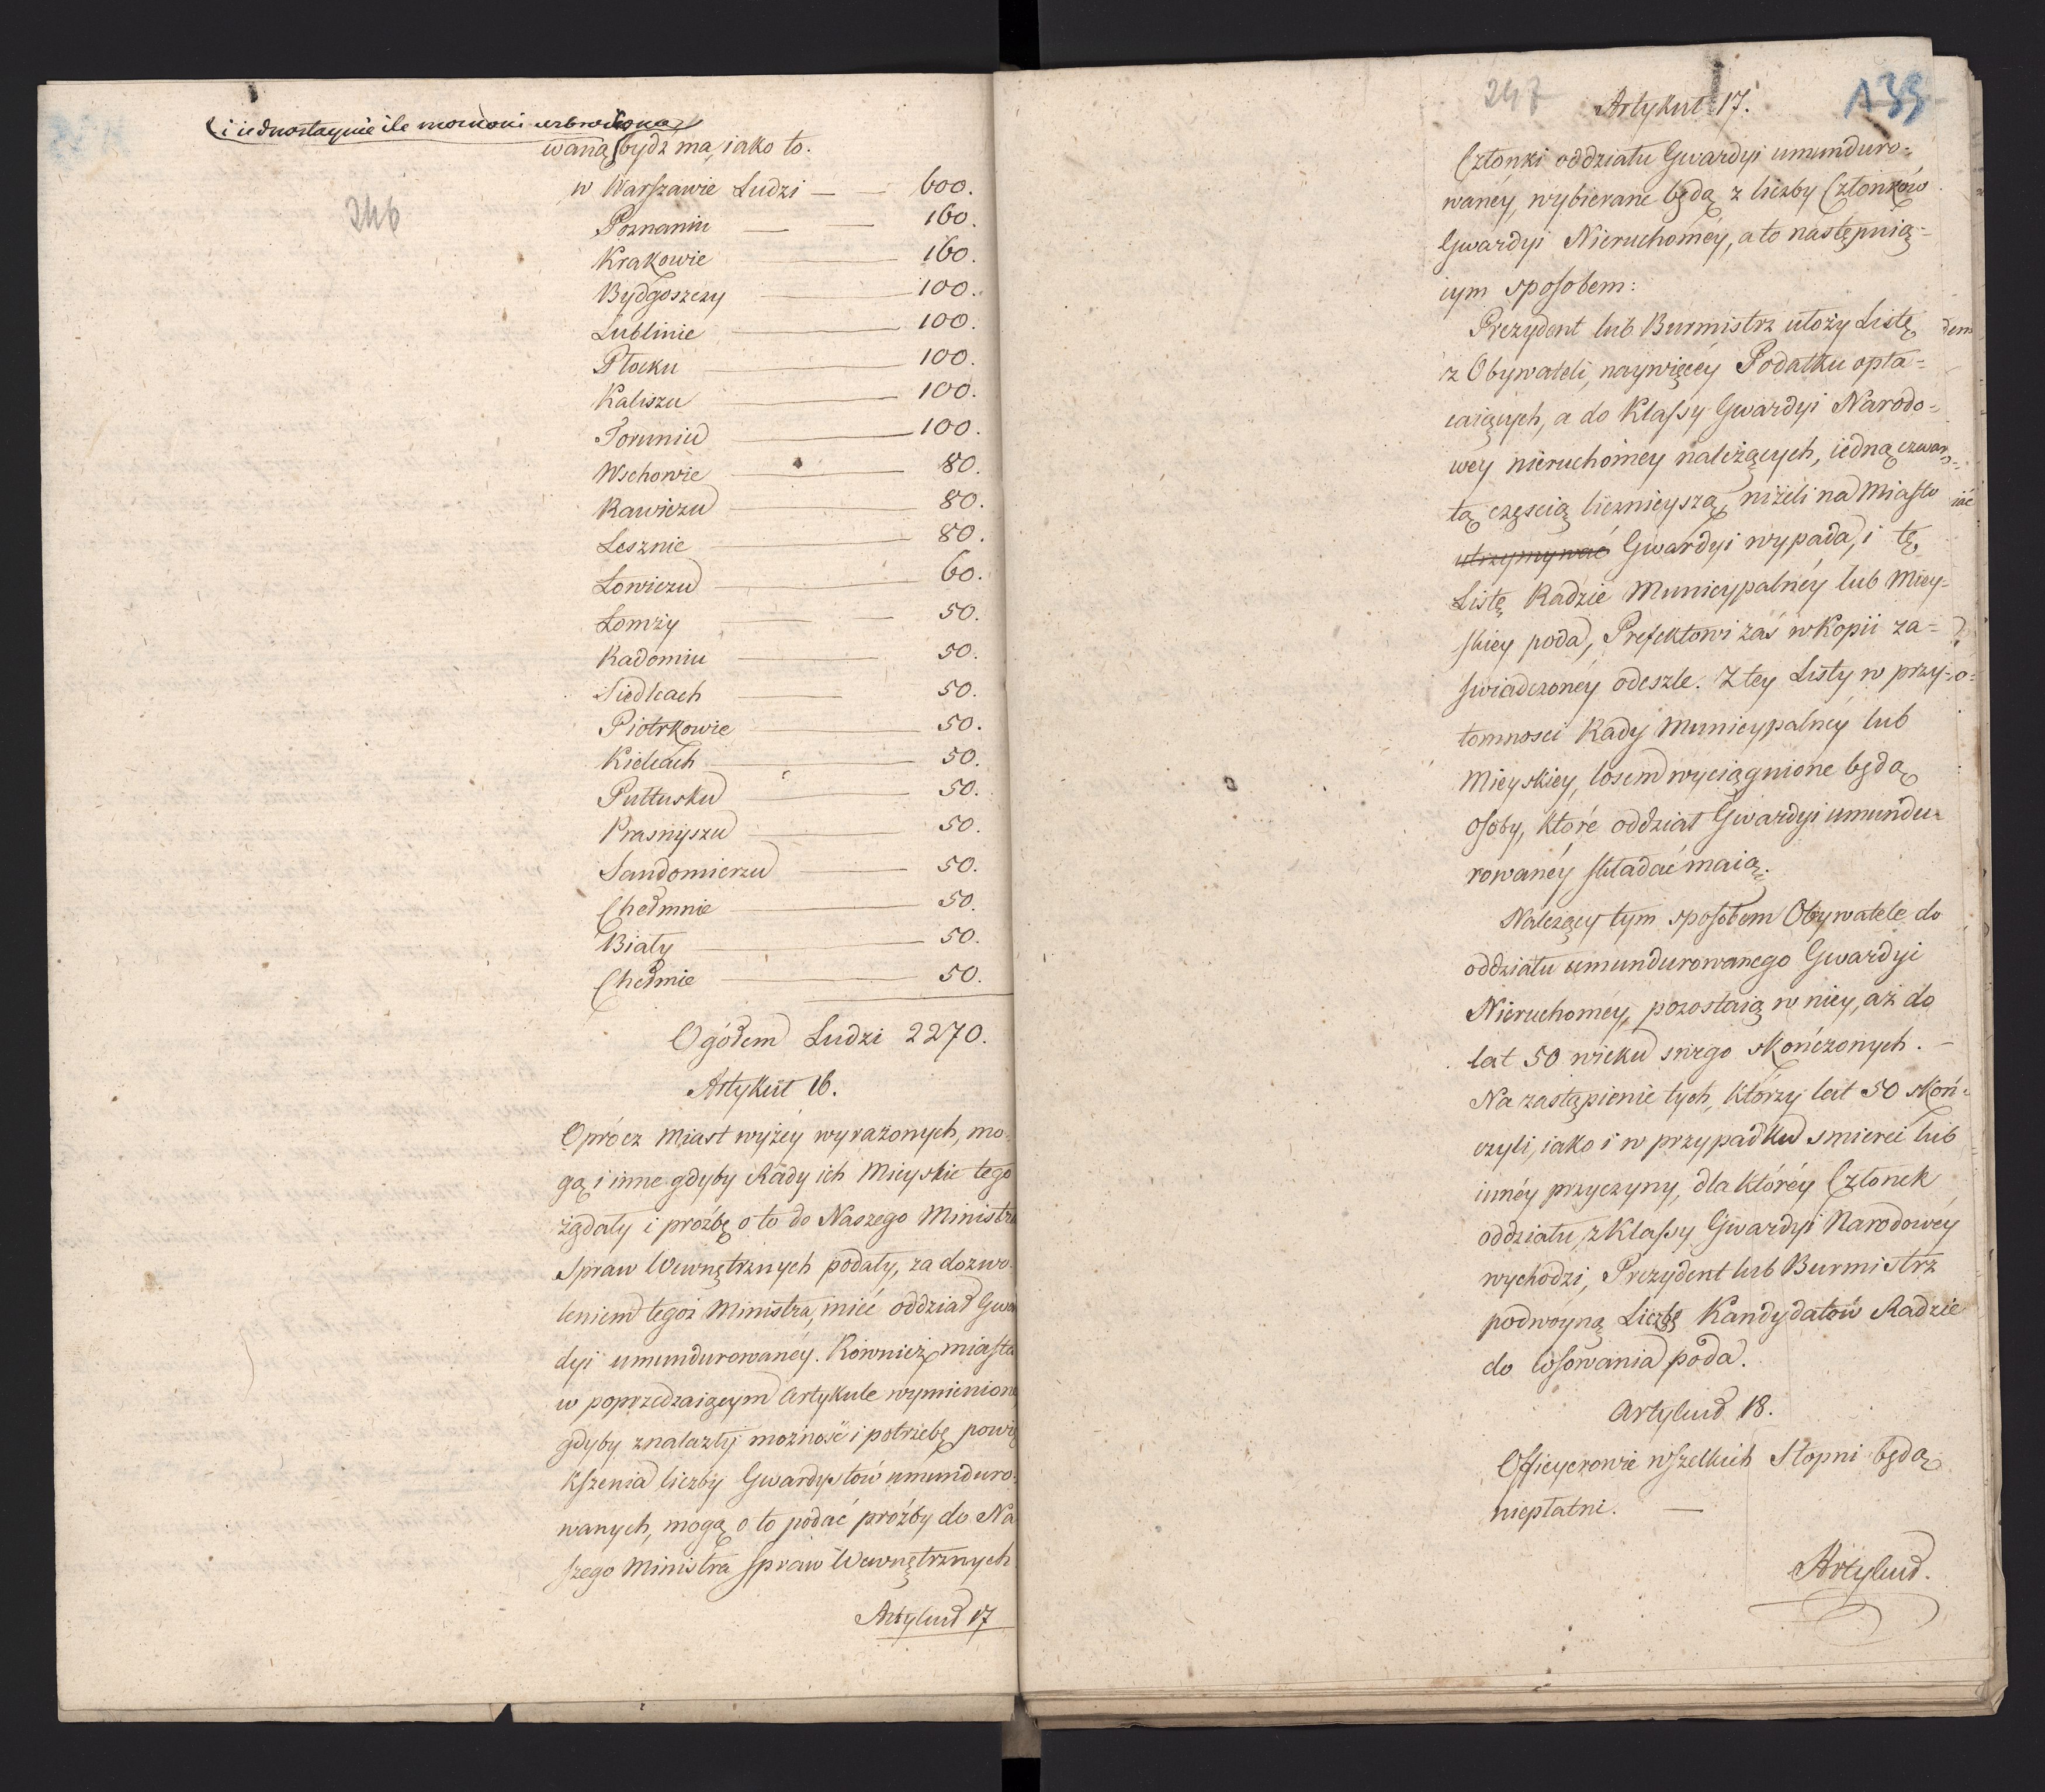 (i iednostaynie ile można uzbroiona)
waną bydź ma, iako to.
246
w Warszawie Ludzi — — 600.
Poznaniu — — 160.
Krakowie — 160.
Bydgoszczy — 100.
Lublinie — 100.
Płocku — 100.
Kaliszu — 100.
Toruniu — 100.
Wschowie — 80.
Rawiczu — 80.
Lesznie — 80.
Łowiczu — 60.
Łomży — 50.
Radomiu — 50.
Siedlcach — 50.
Piotrkowie — 50.
Kielcach — 50.
Pułtusku — 50.
Prasnyszu — 50.
Sandomierzu — 50.
Chełmnie — 50.
Biały — 50.
Chełmie — 50.
Ogółem Ludzi 2270.
Artykuł 16.
Oprócz Miast wyżéy wyrażonych, mo-
gą i inne gdyby Rady ich Mieyskie tego
żądały i proźbę o to do Naszego Ministra
Spraw Wewnętrznych podały, za dozwo-
leniem tegoż Ministra, mieć oddział Gwar
dyi umundurowanéy. Również miasta
w poprzedzaiącym Artykule wymienione
gdyby znalazły możność i potrzebę powię
kszenia liczby Gwardystów umunduro-
wanych, mogą o to podać proźby do Na
szego Ministra Spraw Wewnętrznych
Artykuł 17
247
139
Artykuł 17.
Członki oddziału Gwardyi umunduro-
wanéy, wybierane będą z liczby Członków
Gwardyi Nieruchoméy, a to następuią-
cym sposobem:
Prezydent lub Burmistrz ułoży Listę
z Obywateli, naywięcéy Podatku opła-
caiących, a do Klassy Gwardyi Narodo-
wéy nieruchoméy należących, iedną czwar-
tą częścią licznieyszą, niżeli na Miasto
utrzymywać Gwardyi wypada, i tę
Listę Radzie Municypalnéy lub Miey-
skiey poda, Prefektowi zaś w Kopii za-
świadczonéy odeszle. Z tey Listy w przy-
tomnosci Rady Municypalnéy lub
Mieyskiey, losem wyciągnione będą
osoby, które oddział Gwardyi umundu-
rowanéy składać maią.
Należący tym sposobem Obywatele do
oddziału umundurowanego Gwardyi
Nieruchoméy, pozostaią w niey, aż do
lat 50 wieku swego skończonych. —
Na zastąpienie tych, którzy lat 50 skoń-
czyli, iako i w przypadku smierci lub
innéy przyczyny, dla któréy Członek
oddziału, z Klassy Gwardyi Narodowéy
wychodzi, Prezydent lub Burmistrz
podwoyną Liczbę Kandydatów Radzie
do losowania poda.
Artykuł 18.
Officyerowie wszelkich Stopni będą
niepłatni. —
Artykuł.